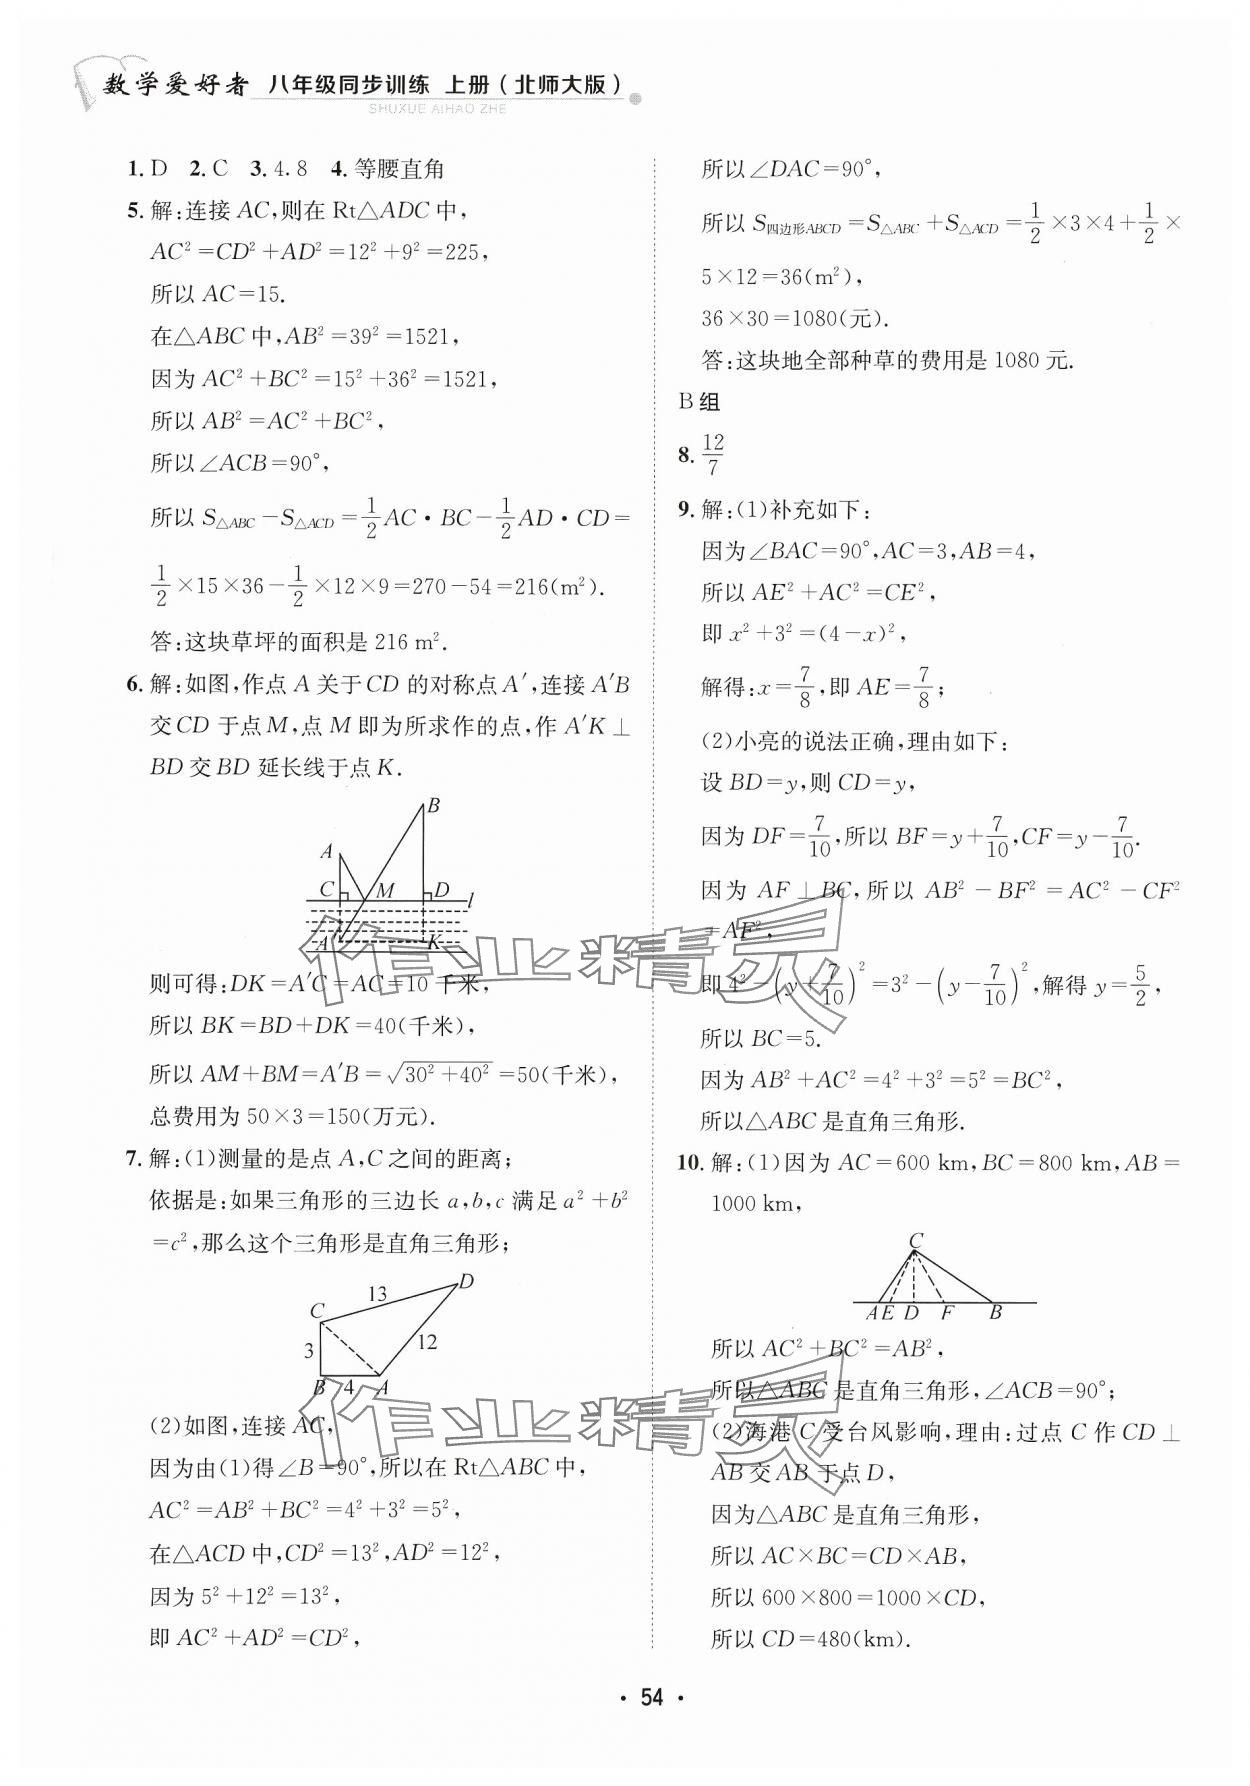 数学爱好者 八年级同步训练 上册(北师大版)
SHUXUE AIHAO ZHE
1. D 2. C 3. 4.8 4. 等腰直角
5. 解:连接 AC,则在 Rt△ADC 中,
AC²=CD²+AD²=12²+9²=225,
所以 AC=15.
在△ABC 中,AB²=39²=1521,
因为 AC²+BC²=15²+36²=1521,
所以 AB²=AC²+BC²,
所以∠ACB=90°,
所以 S△ABC-S△ACD=1/2 AC·BC-1/2 AD·CD=
1/2×15×36-1/2×12×9=270-54=216(m²).
答:这块草坪的面积是 216 m².
6. 解:如图,作点 A 关于CD 的对称点A′,连接 A′B
交CD 于点M,点 M 即为所求作的点,作 A′K⊥
BD 交 BD 延长线于点 K.
B
A
C M D l
A′ K
则可得:DK=A′C=AC=10 千米,
所以 BK=BD+DK=40(千米),
所以 AM+BM=A′B=√(30²+40²)=50(千米),
总费用为 50×3=150(万元).
7. 解:(1)测量的是点 A,C 之间的距离;
依据是:如果三角形的三边长 a,b,c 满足 a²+b²
=c²,那么这个三角形是直角三角形;
D
13
C
12
3
B 4 A
(2)如图,连接 AC,
因为由(1)得∠B=90°,所以在 Rt△ABC 中,
AC²=AB²+BC²=4²+3²=5²,
在△ACD 中,CD²=13²,AD²=12²,
因为 5²+12²=13²,
即 AC²+AD²=CD²,
所以∠DAC=90°,
所以 S四边形ABCD=S△ABC+S△ACD=1/2×3×4+1/2×
5×12=36(m²),
36×30=1080(元).
答:这块地全部种草的费用是 1080 元.
B 组
8. 12/7
9. 解:(1)补充如下:
因为∠BAC=90°,AC=3,AB=4,
所以 AE²+AC²=CE²,
即 x²+3²=(4-x)²,
解得:x=7/8,即 AE=7/8;
(2)小亮的说法正确,理由如下:
设 BD=y,则 CD=y,
因为 DF=7/10,所以 BF=y+7/10,CF=y-7/10.
因为 AF⊥BC,所以 AB²-BF²=AC²-CF²
=AF²,
即 4²-(y+7/10)²=3²-(y-7/10)²,解得 y=5/2,
所以 BC=5.
因为 AB²+AC²=4²+3²=5²=BC²,
所以△ABC 是直角三角形.
10. 解:(1)因为 AC=600 km,BC=800 km,AB=
1000 km,
C
A E D F B
所以 AC²+BC²=AB²,
所以△ABC 是直角三角形,∠ACB=90°;
(2)海港 C 受台风影响,理由:过点 C 作 CD⊥
AB 交 AB 于点 D,
因为△ABC 是直角三角形,
所以 AC×BC=CD×AB,
所以 600×800=1000×CD,
所以 CD=480(km).
作业精灵
作业精灵
· 54 ·